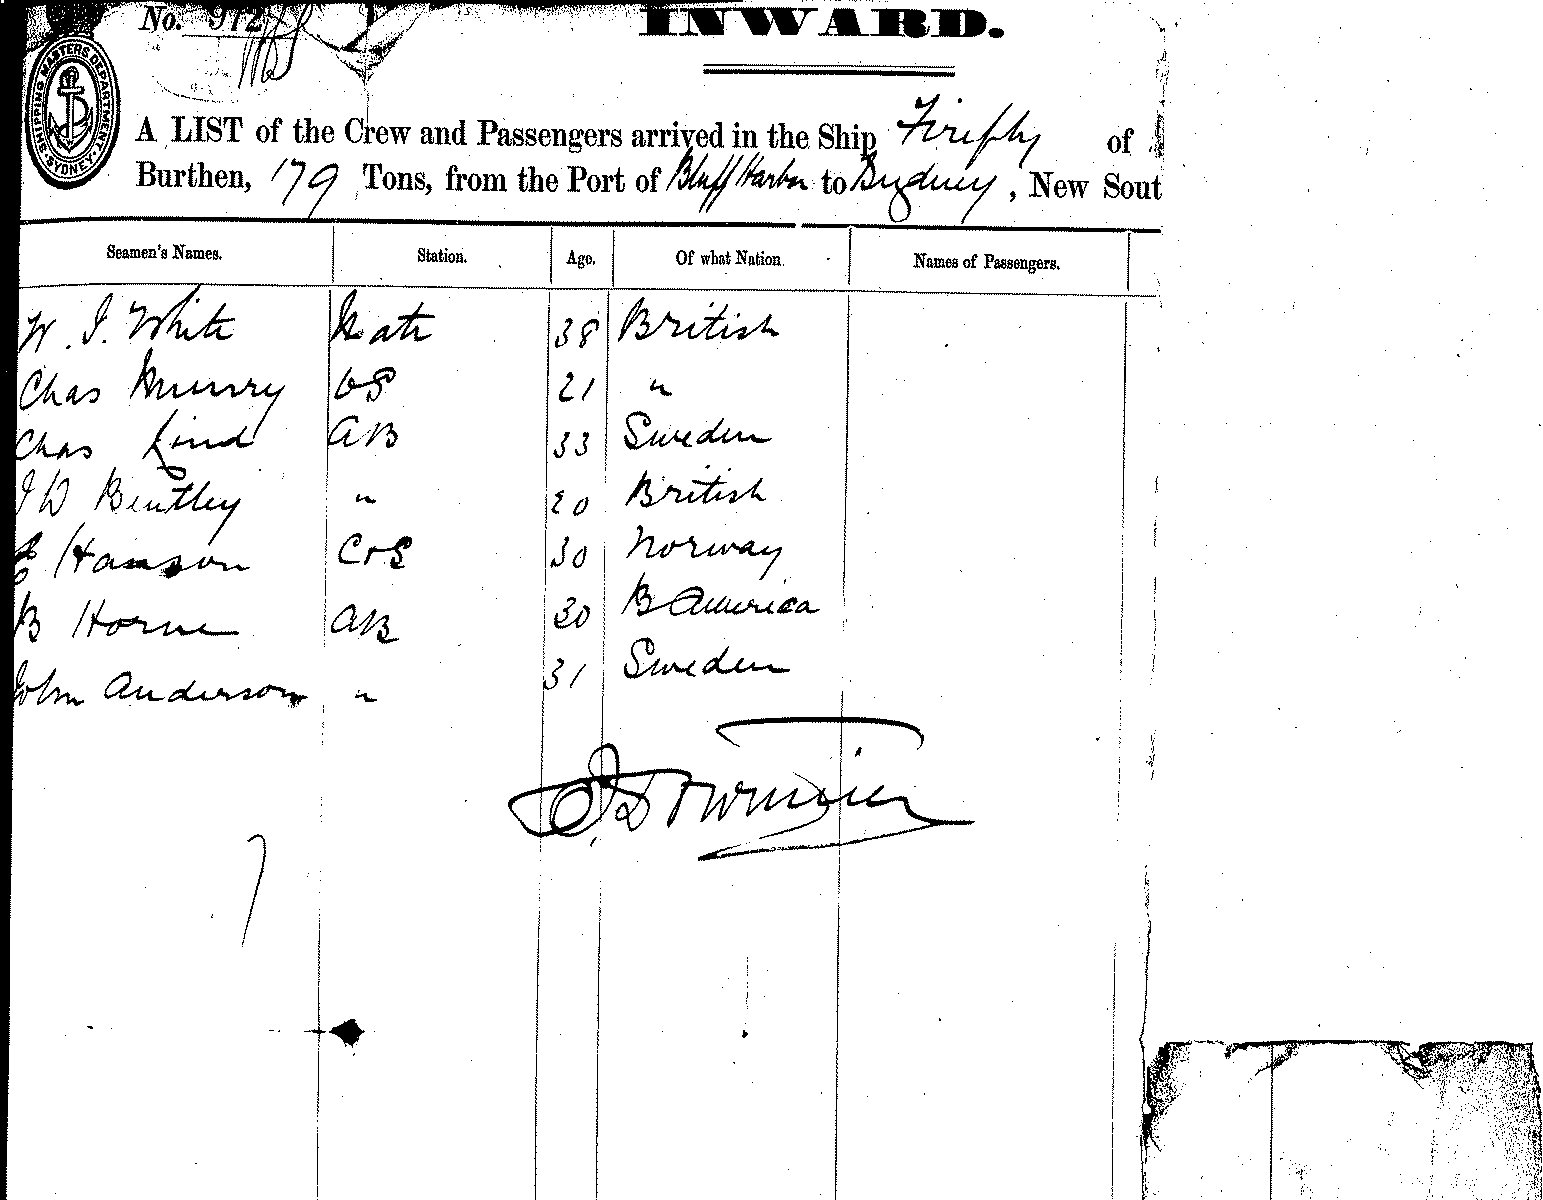 No. 972
INWARD.
SHIPPING MASTERS DEPARTMENT. SYDNEY.
A LIST of the Crew and Passengers arrived in the Ship Firefly of
Burthen, 179 Tons, from the Port of Bluff Harbor to Sydney, New Sout
Seamen's Names. Station. Age. Of what Nation. Names of Passengers.
W. J. White Mate 38 British
Chas Murry OS 21 "
Chas Lind AB 33 Sweden
J W Bentley " 20 British
Hanson C&S 30 Norway
B Horne AB 30 B America
John Anderson " 31 Sweden